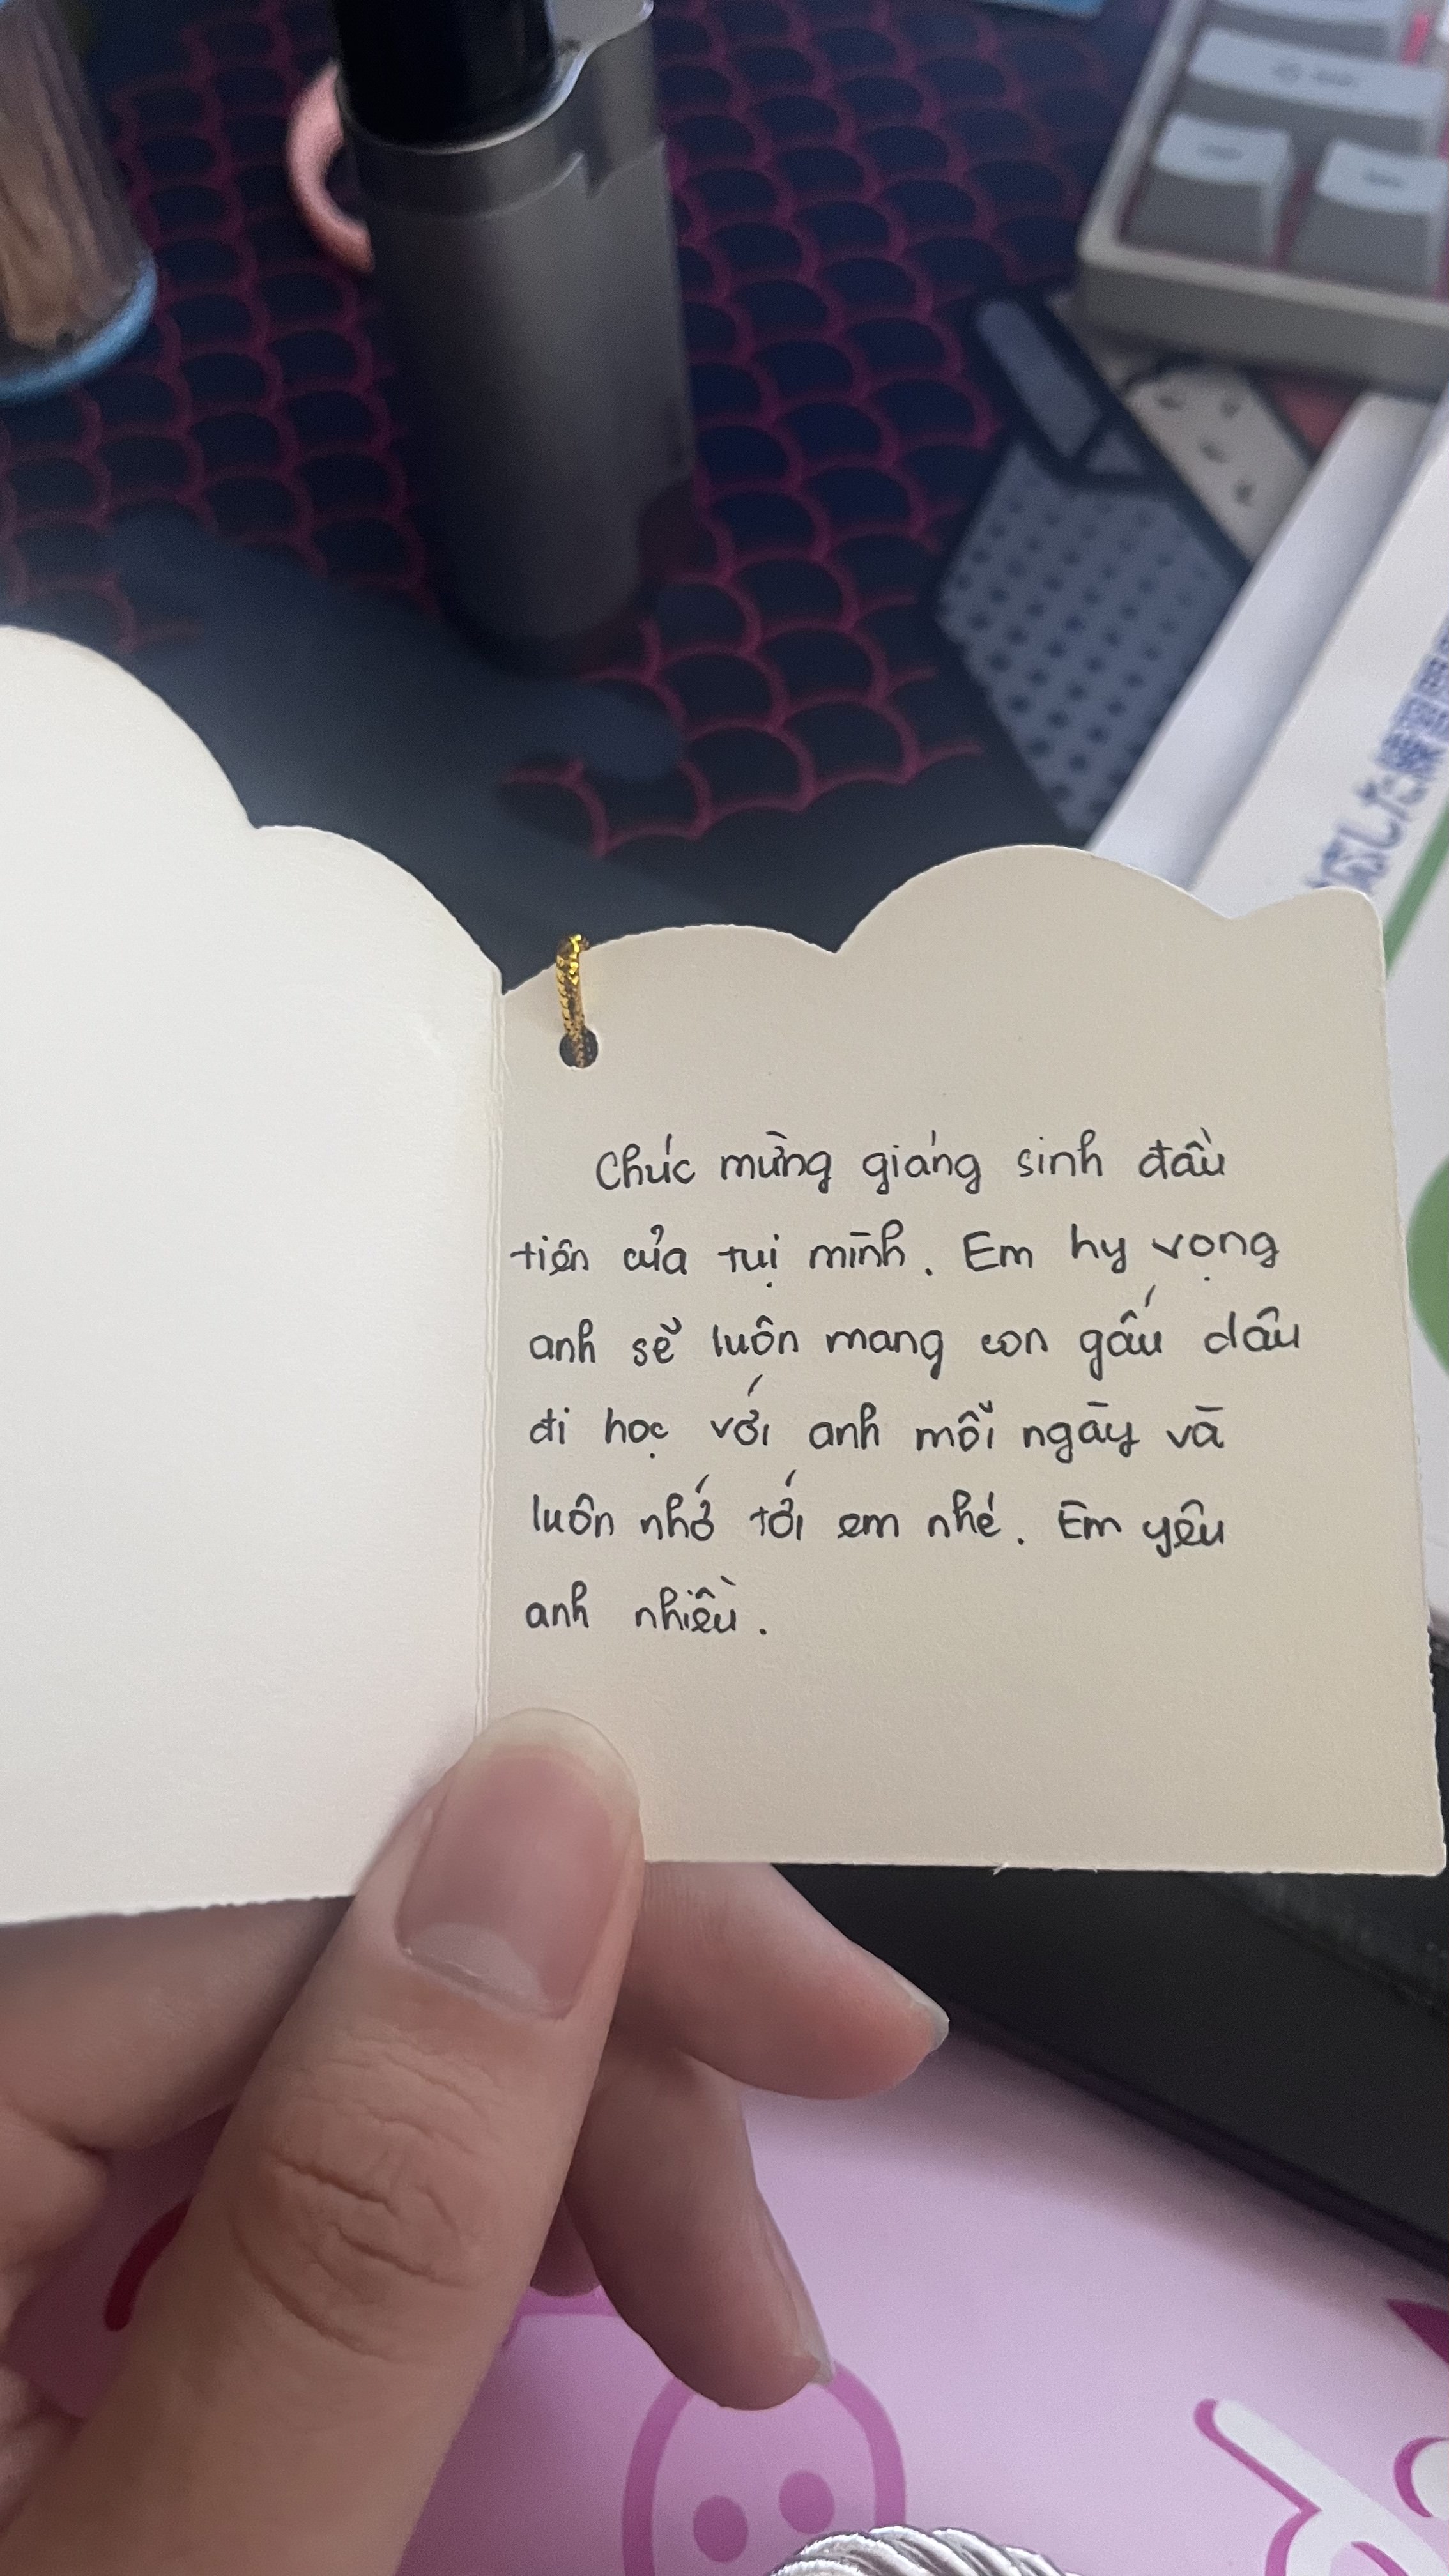 Chúc mừng giáng sinh đầu
tiên của tụi mình. Em hy vọng
anh sẽ luôn mang con gấu dâu
đi học với anh mỗi ngày và
luôn nhớ tới em nhé. Em yêu
anh nhiều.
した練習